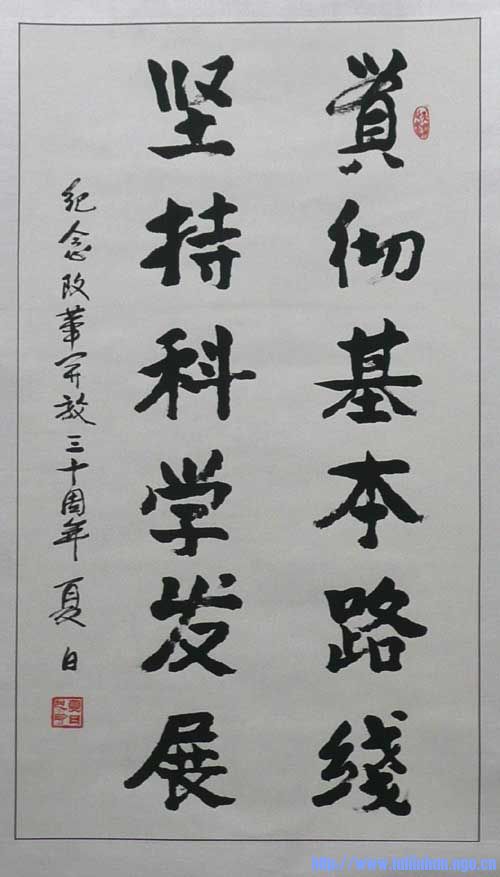 贯彻基本路线
坚持科学发展
纪念改革开放三十周年 夏白